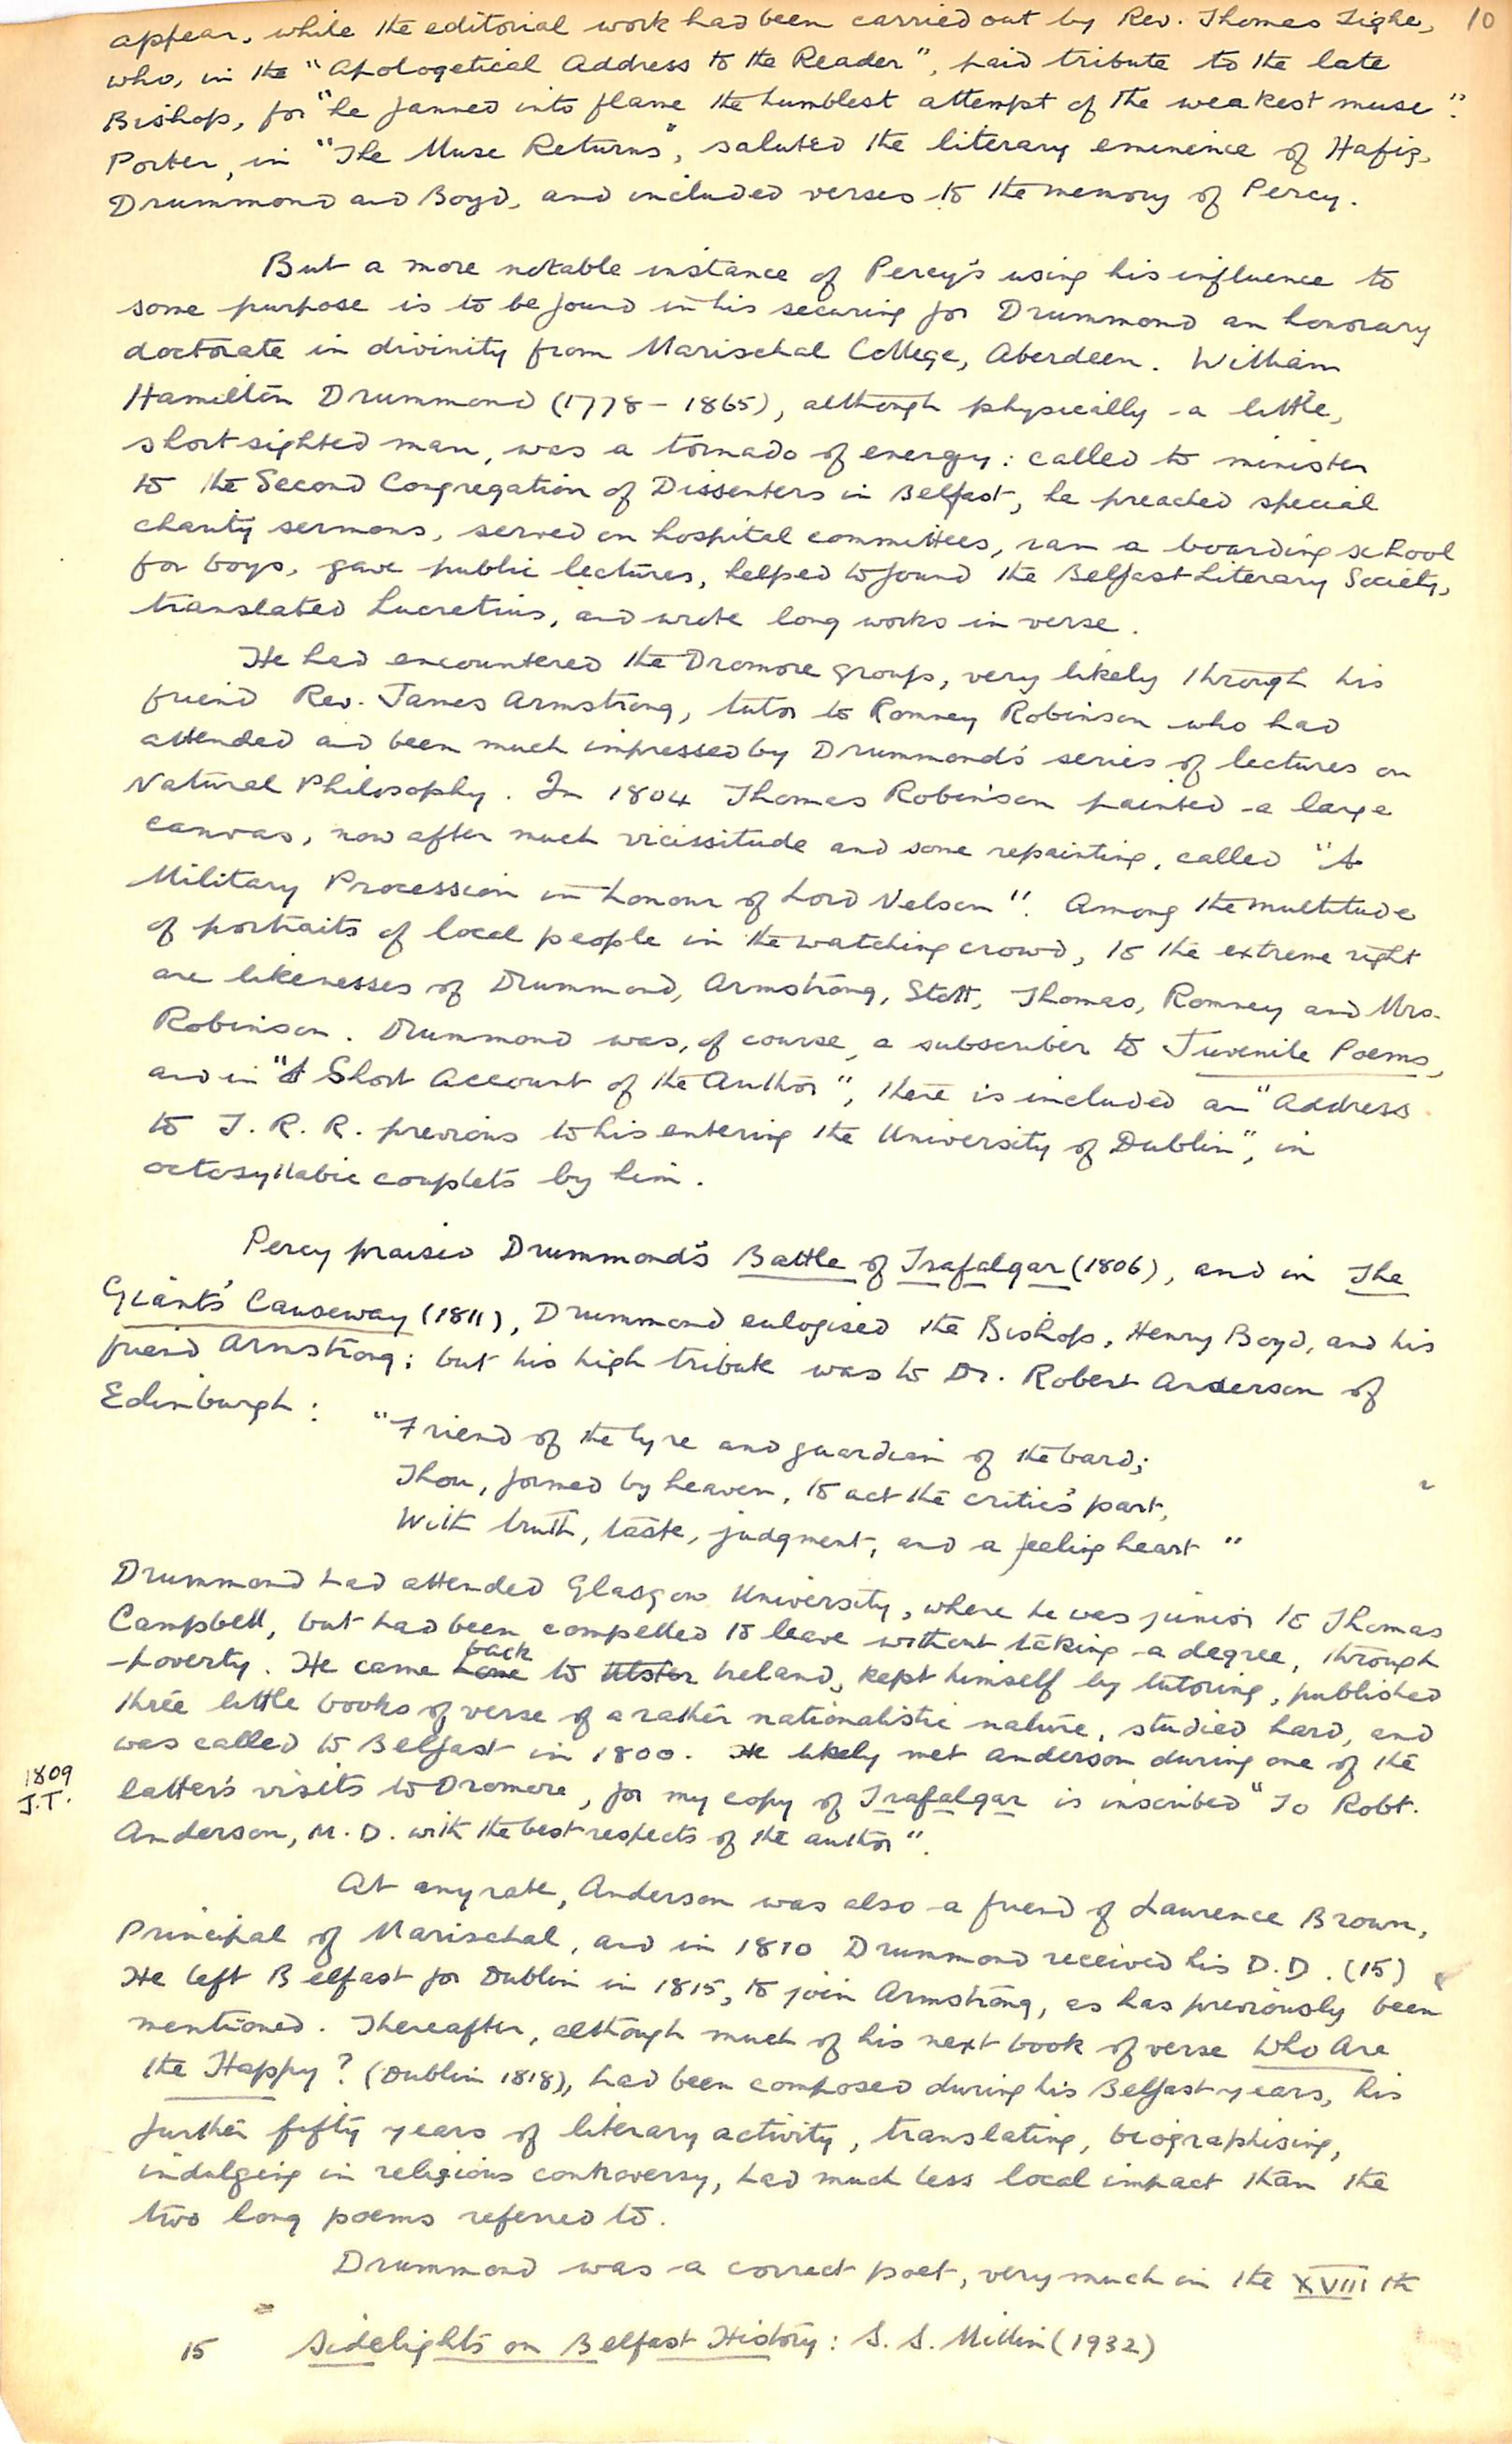 10
appear, while the editorial work had been carried out by Rev. Thomas Tighe,
who, in the "Apologetical Address to the Reader", paid tribute to the late
Bishop, for "he fanned into flame the humblest attempt of the weakest muse".
Porter, in "The Muse Returns", saluted the literary eminence of Hafiz,
Drummond and Boyd, and included verses to the memory of Percy.
But a more notable instance of Percy's using his influence to
some purpose is to be found in his securing for Drummond an honorary
doctorate in divinity from Marischal College, Aberdeen. William
Hamilton Drummond (1778-1865), although physically a little,
shortsighted man, was a tornado of energy: called to minister
to the Second Congregation of Dissenters in Belfast, he preached special
charity sermons, served on hospital committees, ran a boarding school
for boys, gave public lectures, helped to found the Belfast Literary Society,
translated Lucretius, and wrote long works in verse.
He had encountered the Dromore group, very likely through his
friend Rev. James Armstrong, tutor to Romney Robinson who had
attended and been much impressed by Drummond's series of lectures on
Natural Philosophy. In 1804 Thomas Robinson painted a large
canvas, now after much vicissitude and some repainting, called "A
Military Procession in honour of Lord Nelson". Among the multitude
of portraits of local people in the watching crowd, to the extreme right
are likenesses of Drummond, Armstrong, Stott, Thomas, Romney and Mrs.
Robinson. Drummond was, of course, a subscriber to Juvenile Poems,
and in "A Short Account of the Author", there is included an "Address
to T. R. R. previous to his entering the University of Dublin", in
octosyllabic couplets by him.
Percy praised Drummond's Battle of Trafalgar (1806), and in The
Giant's Causeway (1811), Drummond eulogised the Bishop, Henry Boyd, and his
friend Armstrong; but his high tribute was to Dr. Robert Anderson of
Edinburgh:
"Friend of the lyre and guardian of the bard;
Thou, formed by heaven, to act the critic's part,
With truth, taste, judgment, and a feeling heart"
Drummond had attended Glasgow University, where he was junior to Thomas
Campbell, but had been compelled to leave without taking a degree, through
poverty. He came home back to Ulster Ireland, kept himself by tutoring, published
three little books of verse of a rather nationalistic nature, studied hard, and
was called to Belfast in 1800. He likely met Anderson during one of the
1809
J.T.
latter's visits to Dromore, for my copy of Trafalgar is inscribed "To Robt.
Anderson, M.D. with the best respects of the author".
At anyrate, Anderson was also a friend of Laurence Brown,
Principal of Marischal, and in 1810 Drummond received his D.D. (15)
He left Belfast for Dublin in 1815, to join Armstrong, as has previously been
mentioned. Thereafter, although much of his next book of verse Who Are
the Happy? (Dublin 1818), had been composed during his Belfast years, his
further fifty years of literary activity, translating, biographising,
indulging in religious controversy, had much less local impact than the
two long poems referred to.
Drummond was a correct poet, very much in the XVIII th
15 Sidelights on Belfast History: S. S. Millin (1932)